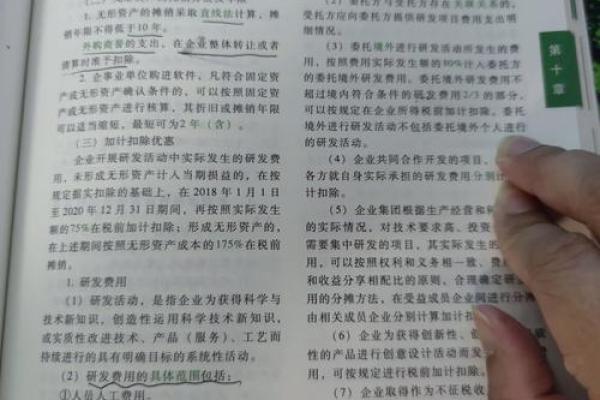 1. 无形资产的摊销采取直线法计算，摊
销年限不得低于10年。
外购商誉的支出，在企业整体转让或者
清算时准予扣除。
2. 企事业单位购进软件，凡符合固定资
产或无形资产确认条件的，可以按照固定资
产或无形资产进行核算，其折旧或摊销年限
可以适当缩短，最短可为2年（含）。
（三）加计扣除优惠
企业开展研发活动中实际发生的研发费
用，未形成无形资产计入当期损益的，在按
规定据实扣除的基础上，在2018年1月1日
至2020年12月31日期间，再按照实际发生
额的75%在税前加计扣除；形成无形资产的，
在上述期间按照无形资产成本的175%在税前
摊销。
1. 研发费用
（1）研发活动，是指企业为获得科学与
技术新知识，创造性运用科学技术新知识，
或实质性改进技术、产品（服务）、工艺而
持续进行的具有明确目标的系统性活动。
（2）研发费用的具体范围包括：
①人员人工费用。
（2）委托方与受托方存在关联关系的，
受托方应向委托方提供研发项目费用支出明
细情况。
（3）委托境外进行研发活动所发生的费
用，按照费用实际发生额的80%计入委托方
的委托境外研发费用。委托境外研发费用不
超过境内符合条件的研发费用2/3的部分，
可以按规定在企业所得税前加计扣除。委托
境外进行研发活动不包括委托境外个人进行
的研发活动。
（4）企业共同合作开发的项目，
各方就自身实际承担的研发费用分别计
计扣除。
（5）企业集团根据生产经营和科
的实际情况，对技术要求高、投资
需要集中研发的项目，其实际发生的
用，可以按照权利和义务相一致、费
和收益分享相配比的原则，合理确定研
用的分摊方法，在受益成员企业间进行分摊
由相关成员企业分别计算加计扣
（6）企业为获得创新性、创
性的产品进行创意设计活动而发
用，可按规定进行税前加计扣除。
（7）企业取得作为不征税收
第十章